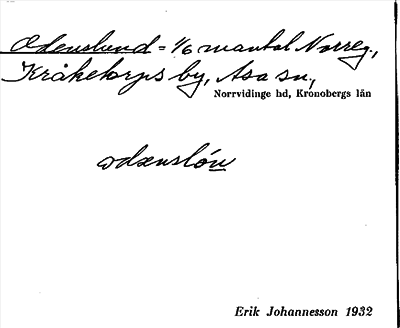 Odenslund = 1/6 mantal Norreg.,
Kråketorps by, Asa sn,
Norrvidinge hd, Kronobergs län
odænslón
Erik Johannesson 1932